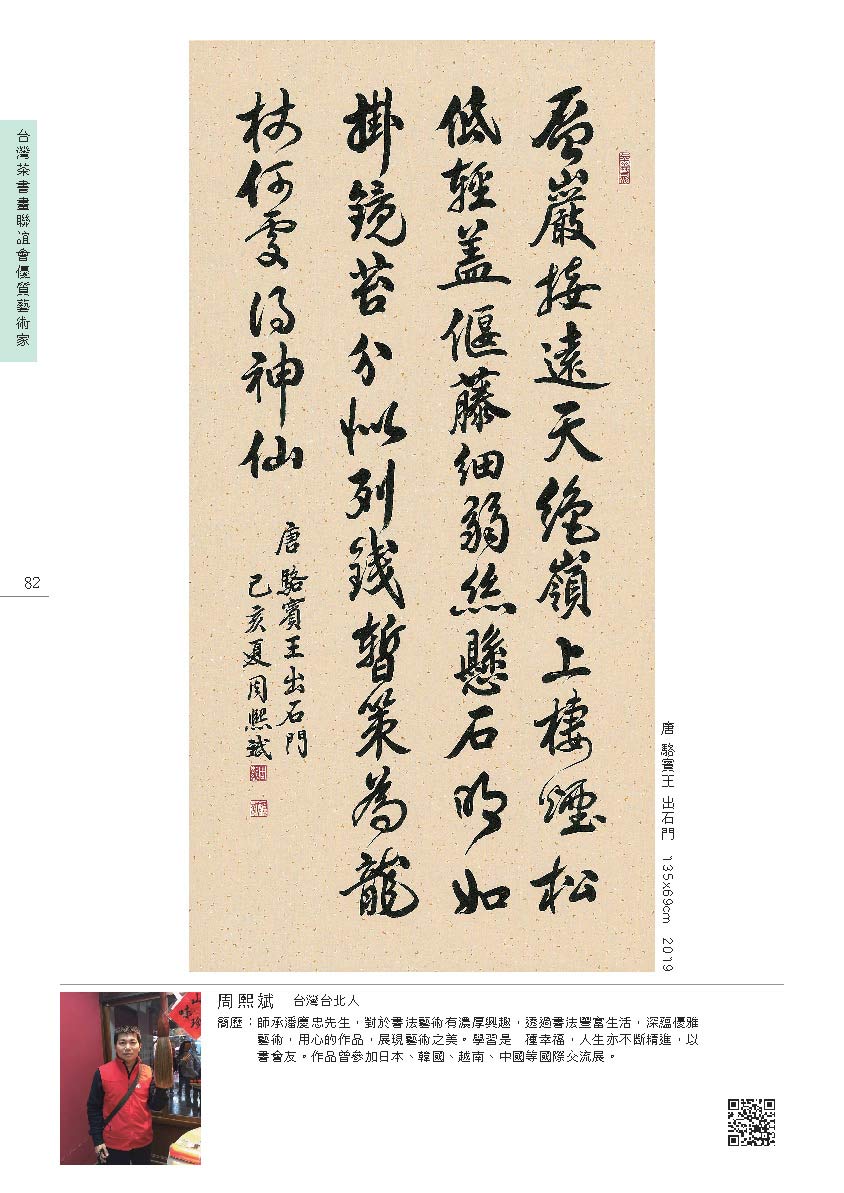 台灣茶書畫聯誼會優質藝術家
82
層巖接遠天絕嶺上棲煙松
低輕盖偃藤細弱絲懸石明如
掛鏡苔分似列錢暫策為龍
杖何處得神仙
唐 駱賓王出石門
己亥夏周熙斌
唐 駱賓王 出石門 135x69cm 2019
周熙斌 台灣台北人
簡歷：師承潘慶忠先生，對於書法藝術有濃厚興趣，透過書法豐富生活，深蘊優雅
藝術，用心的作品，展現藝術之美。學習是 種幸福，人生亦不斷精進，以
書會友。作品曾參加日本、韓國、越南、中國等國際交流展。